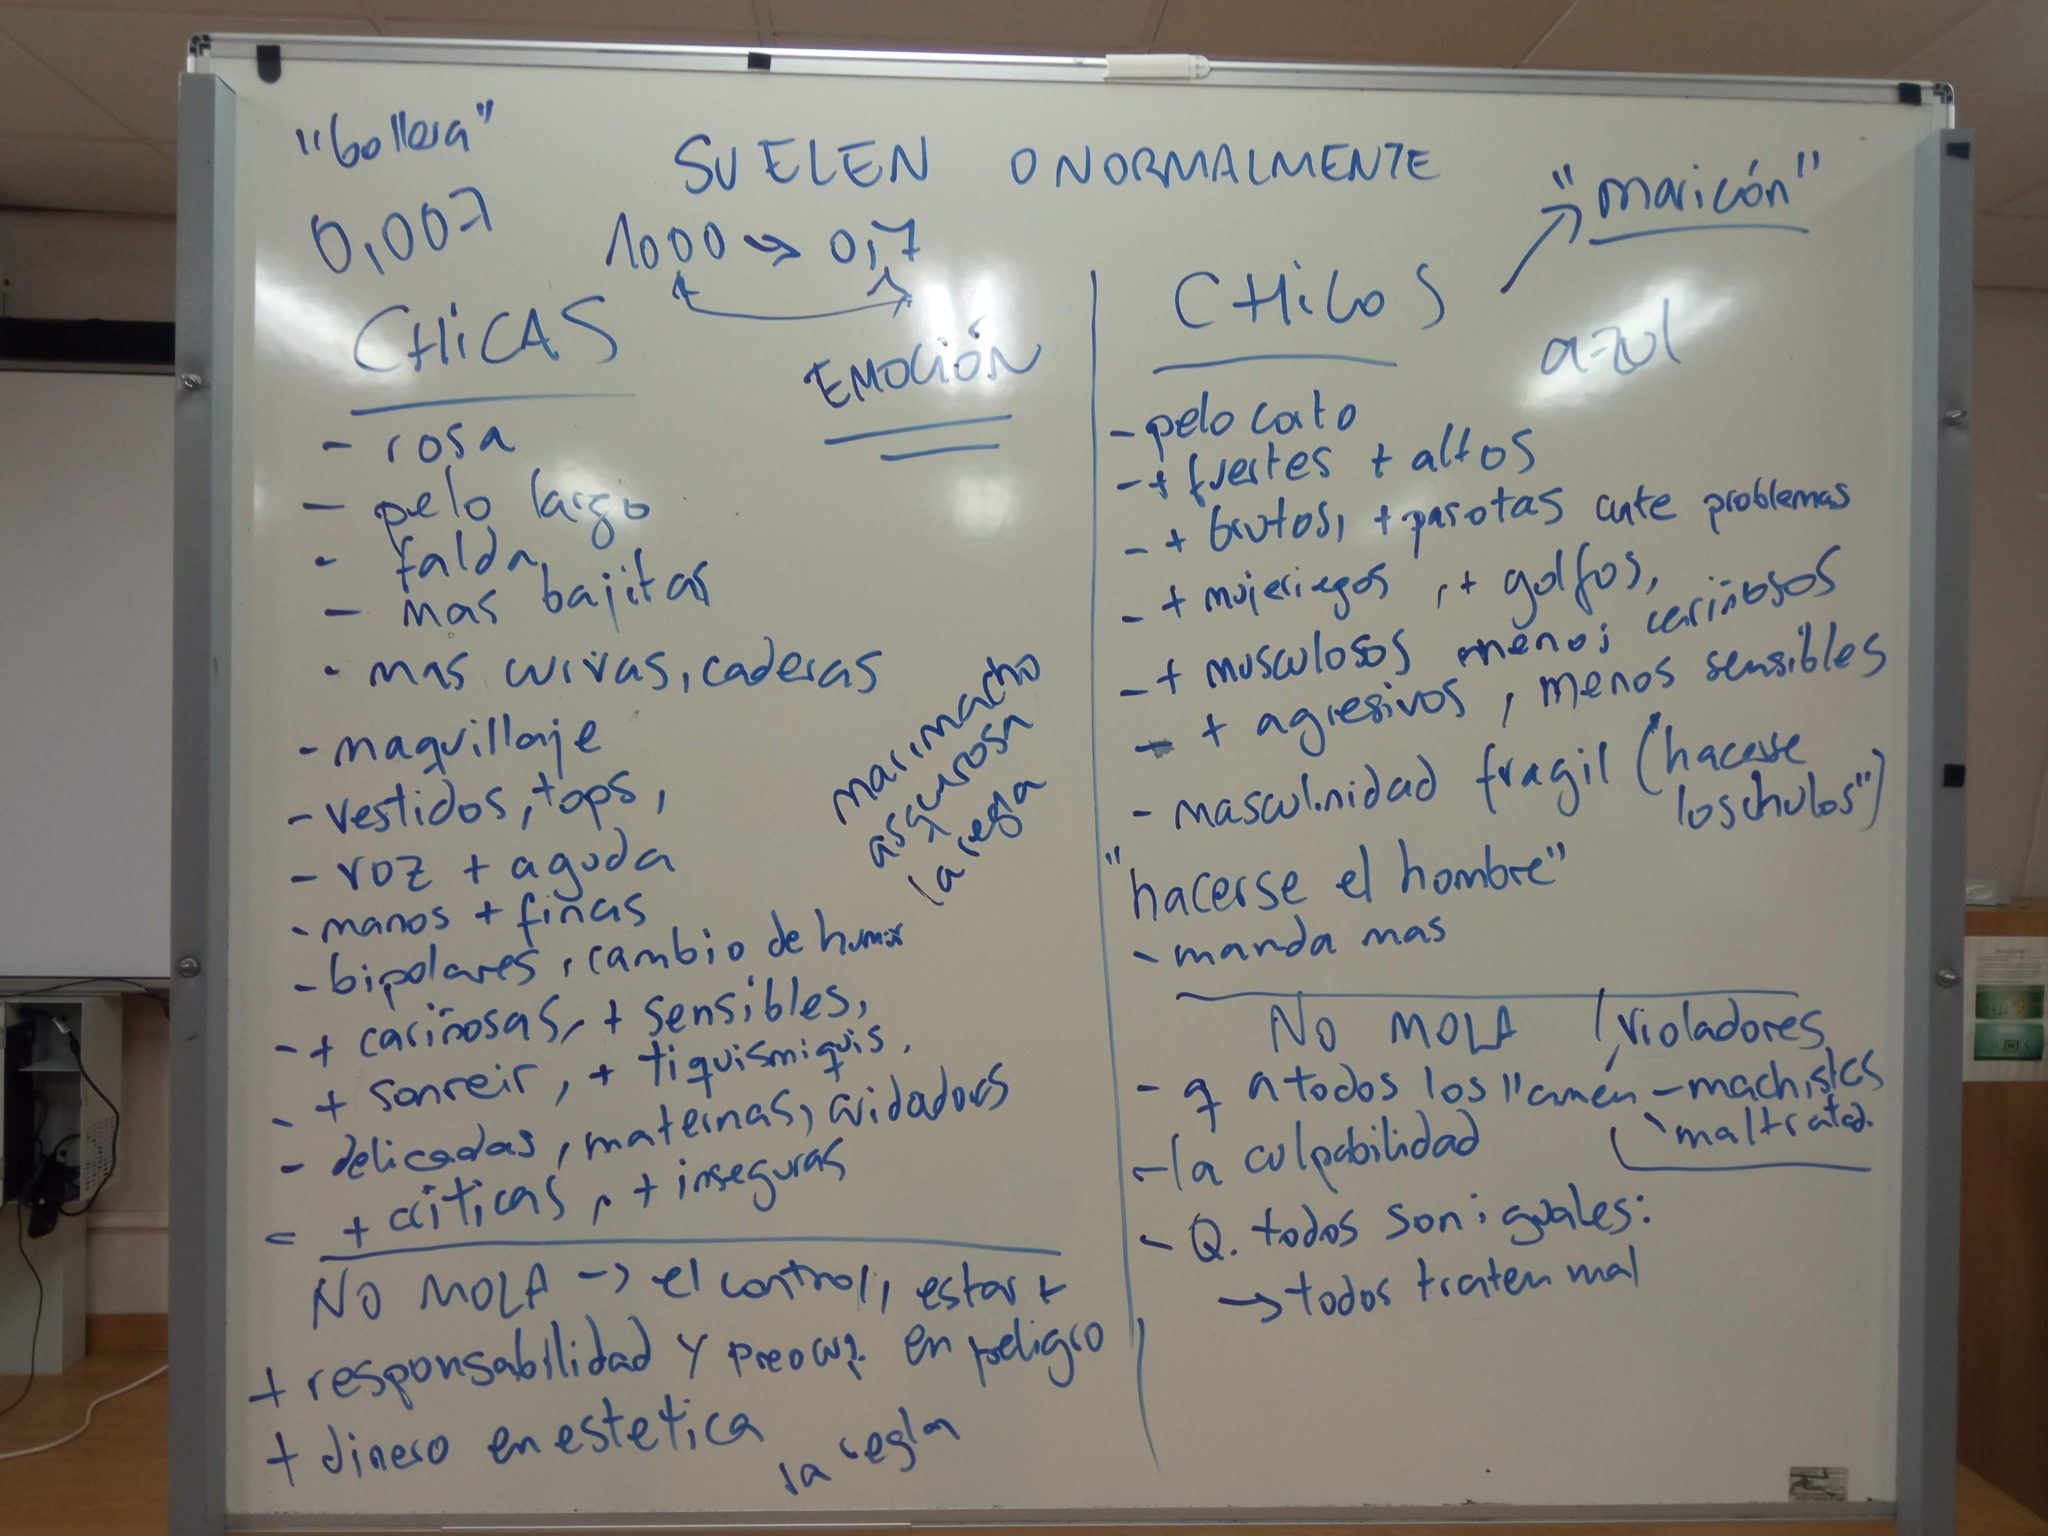 "bollera"
SUELEN O NORMALMENTE
"maricón"
0,007
1000 → 0,7
CHICAS
EMOCIÓN
- rosa
- pelo largo
- falda
- mas bajitas
- mas curvas, caderas
- maquillaje
- vestidos, tops,
- voz + aguda
- manos + finas
- bipolares, cambio de humor
- + cariñosas, + sensibles,
- + sonreir, + tiquismiquis,
- delicadas, maternas, cuidadoras
- + criticas, + inseguras
marimacho
asquerosa
la regla
NO MOLA -> el control, estar +
+ responsabilidad y preocup. en peligro
+ dinero en estetica
la regla
CHICOS
azul
- pelo corto
- + fuertes + altos
- + brutos, + pasotas ante problemas
- + mujeriegos, + golfos,
- + musculosos menos cariñosos
- + agresivos, menos sensibles
- masculinidad fragil (hacerse
los chulos")
"hacerse el hombre"
- manda mas
NO MOLA
violadores
- q a todos los llamen - machistas
maltratad.
- la culpabilidad
- Q. todos son iguales:
→ todos traten mal